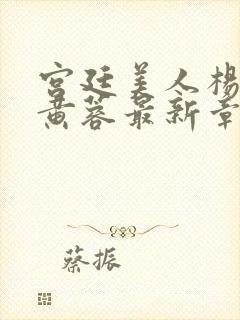 宫廷美人杨
黄蓉最新章
蔡振